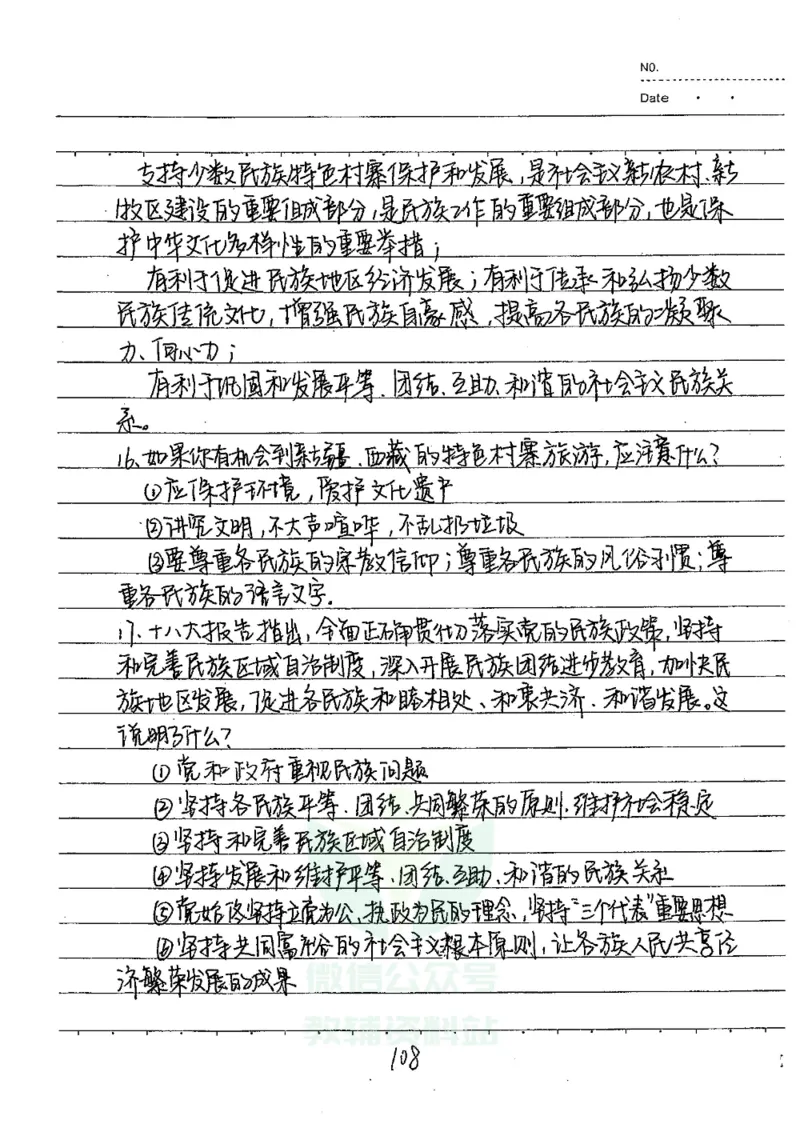 NO.
Date
支持少数民族特色村寨保护和发展,是社会主义新农村、新
牧区建设的重要组成部分,是民族工作的重要组成部分,也是保
护中华文化多样性的重要举措;
有利于促进民族地区经济发展;有利于传承和弘扬少数
民族传统文化,增强民族自豪感,提高各民族的凝聚
力、向心力;
有利于巩固和发展平等、团结、互助、和谐的社会主义民族关
系。
16、如果你有机会到新疆、西藏的特色村寨旅游,应注意什么?
①应保护环境,爱护文化遗产
②讲究文明,不大声喧哗,不乱扔垃圾
③要尊重各民族的宗教信仰;尊重各民族的风俗习惯;尊
重各民族的语言文字.
17、十八大报告指出,全面正确贯彻落实党的民族政策,坚持
和完善民族区域自治制度,深入开展民族团结进步教育,加快民
族地区发展,促进各民族和睦相处、和衷共济、和谐发展。这
说明了什么?
①党和政府重视民族问题
②坚持各民族平等、团结、共同繁荣的原则.维护社会稳定
③坚持和完善民族区域自治制度
④坚持发展和维护平等、团结、互助、和谐的民族关系
⑤党始终坚持立党为公、执政为民的理念,坚持“三个代表”重要思想
⑥坚持共同富裕的社会主义根本原则,让各族人民共享经
济繁荣发展的成果
微信公众号
教辅资料站
108